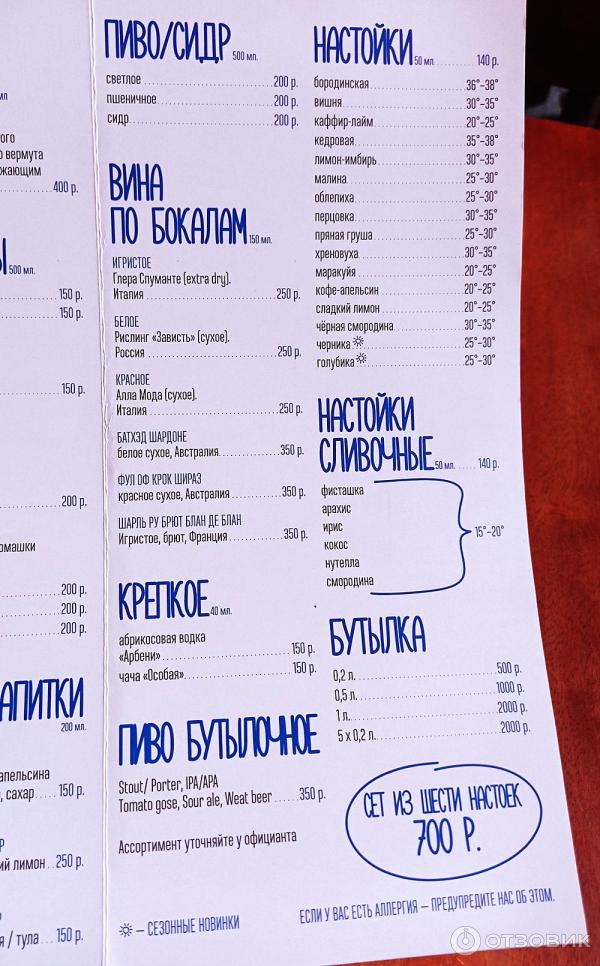 мл
ого
о вермута
жающим
400 р.
Ы 500 мл.
150 р.
150 р.
150 р.
200 р.
омашки
200 р.
200 р.
200 р.
АПИТКИ
200 мл.
апельсина
, сахар 150 р.
Р
ий лимон 250 р.
я / тула 150 р.
ПИВО/СИДР 500 мл.
светлое 200 р.
пшеничное 200 р.
сидр 200 р.
ВИНА
ПО БОКАЛАМ 150 мл.
ИГРИСТОЕ
Глера Спуманте (extra dry).
Италия 250 р.
БЕЛОЕ
Рислинг «Зависть» (сухое).
Россия 250 р.
КРАСНОЕ
Алла Мода (сухое).
Италия 250 р.
БАТХЭД ШАРДОНЕ
белое сухое, Австралия. 350 р.
ФУЛ ОФ КРОК ШИРАЗ
красное сухое, Австралия 350 р.
ШАРЛЬ РУ БРЮТ БЛАН ДЕ БЛАН
Игристое, брют, Франция 350 р.
КРЕПКОЕ 40 мл.
абрикосовая водка
«Арбени» 150 р.
чача «Особая» 150 р.
ПИВО БУТЫЛОЧНОЕ
Stout/ Porter, IPA/APA
Tomato gose, Sour ale, Weat beer 350 р.
Ассортимент уточняйте у официанта
☼ – СЕЗОННЫЕ НОВИНКИ
НАСТОЙКИ 50 мл. 140 р.
бородинская 36°-38°
вишня 30°-35°
каффир-лайм 20°-25°
кедровая 35°-38°
лимон-имбирь 30°-35°
малина 25°-30°
облепиха 25°-30°
перцовка 30°-35°
пряная груша 25°-30°
хреновуха 30°-35°
маракуйя 20°-25°
кофе-апельсин 20°-25°
сладкий лимон 20°-25°
чёрная смородина 30°-35°
черника ☼ 25°-30°
голубика ☼ 25°-30°
НАСТОЙКИ
СЛИВОЧНЫЕ 50 мл. 140 р.
фисташка
арахис
ирис
кокос
нутелла
смородина
15°-20°
БУТЫЛКА
0,2 л. 500 р.
0,5 л. 1000 р.
1 л. 2000 р.
5 х 0,2 л. 2000 р.
СЕТ ИЗ ШЕСТИ НАСТОЕК
700 Р.
ЕСЛИ У ВАС ЕСТЬ АЛЛЕРГИЯ – ПРЕДУПРЕДИТЕ НАС ОБ ЭТОМ.
ОТЗОВИК